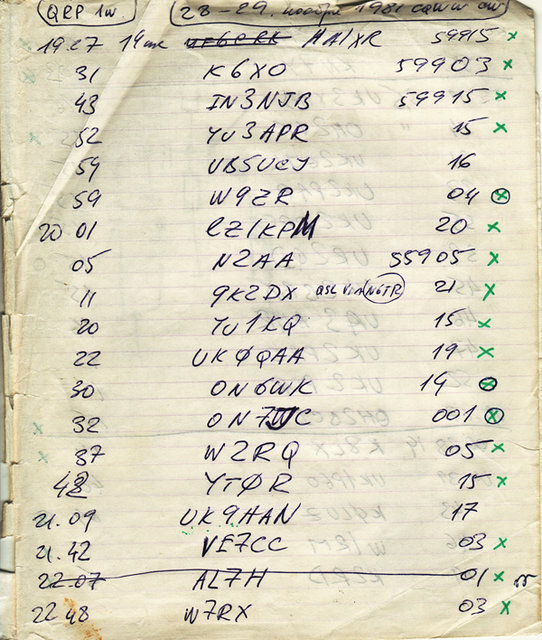 QRP 1w. 28-29. ноября 1981 CQWW CW
1927 14 MHA1XR 59915 x
31 K6XO 59903 x
43 IN3NJB 59915 x
52 YU3APR 15 x
59 UB5UCJ 16
59 W9ZR 04 x
20 01 LZ1KPM 20 x
05 N2AA 55905 x
11 9K2DX QSL VIA N6TR 21 x
20 YU1KQ 15 x
22 UK0QAA 19 x
30 ON6WK 14 x
32 001 x
37 W2RQ 05 x
48 YT0R 15 x
21.09 UK9HAN 17
21.42 VE7CC 03 x
22 07 AL7H 01 x
22 48 W7RX 03 x